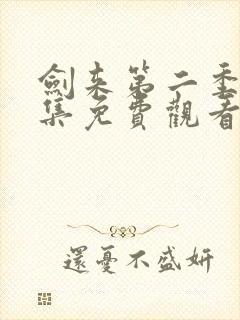 劍来第二季
集免費觀看
還憂不盛妍